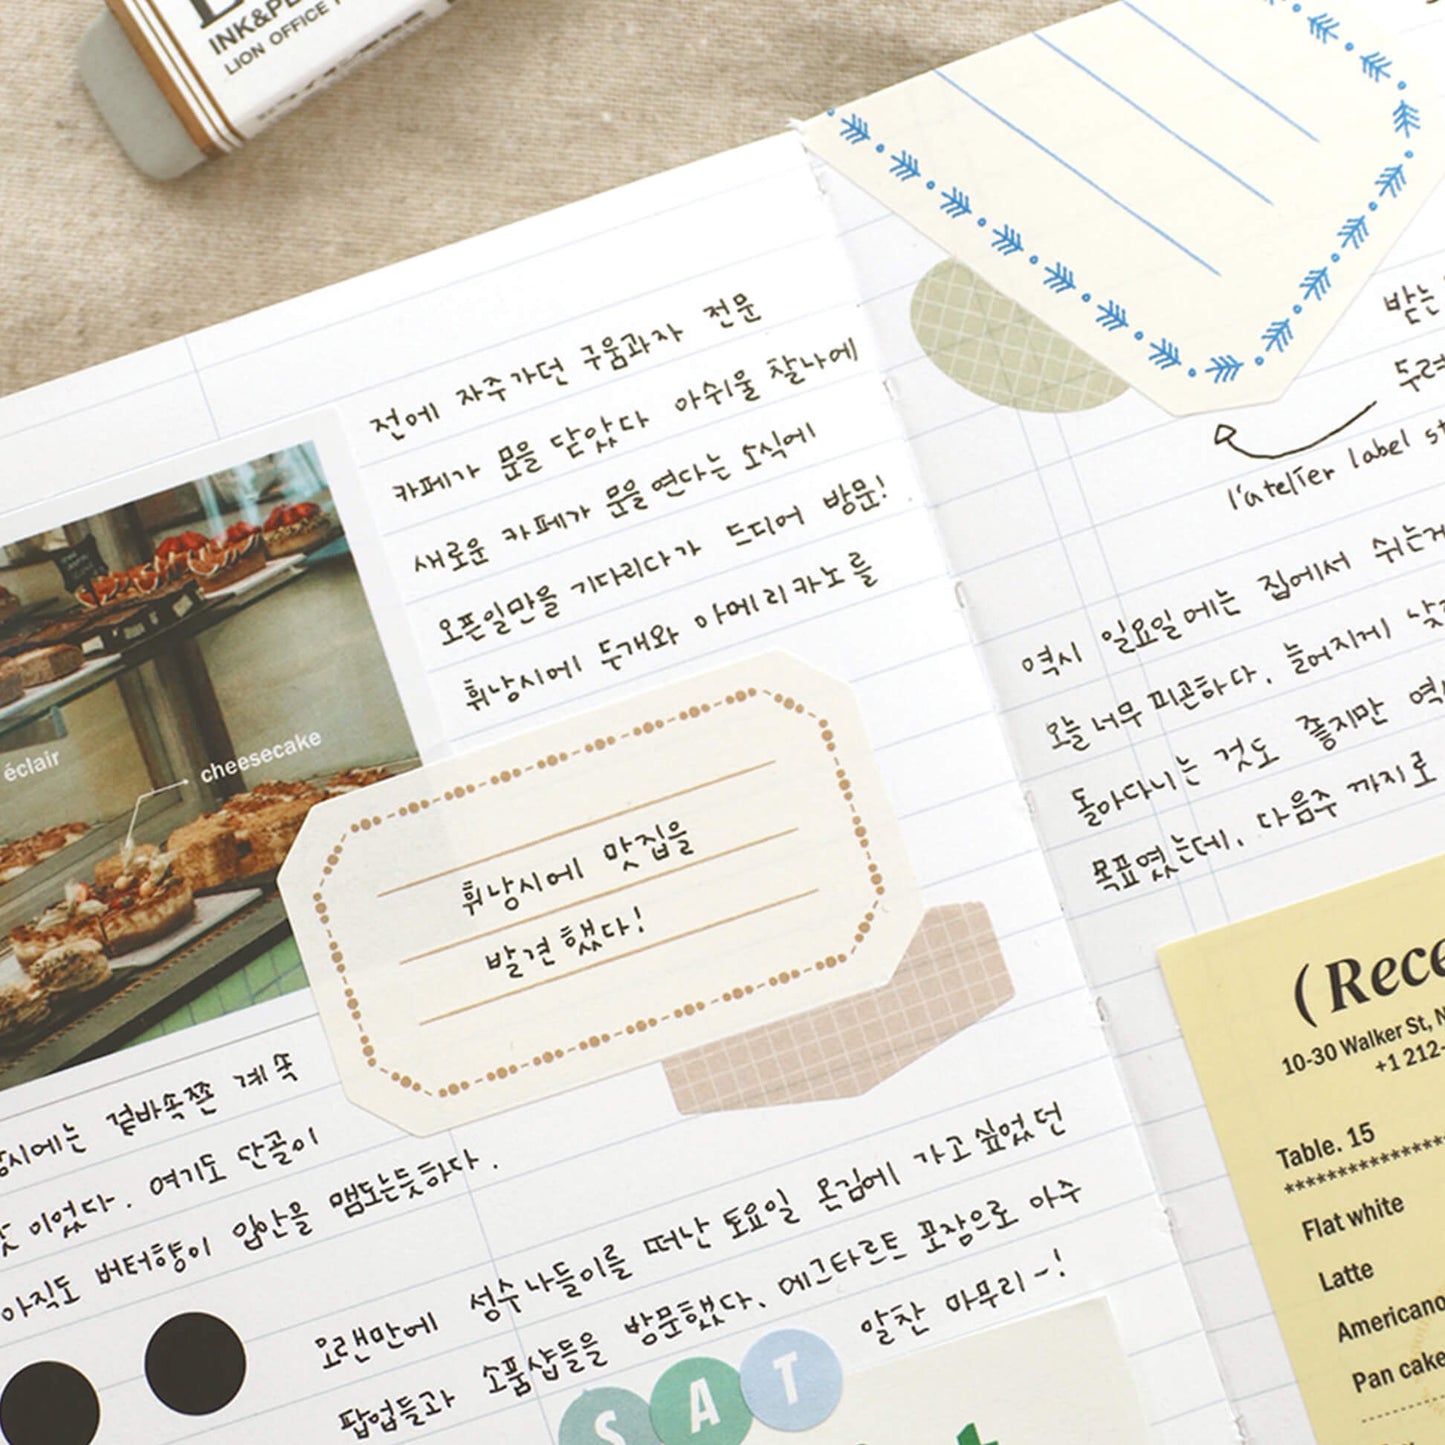 INK&PE
LION OFFICE
전에 자주가던 구움과자 전문
카페가 문을 닫았다 아쉬울 찰나에
새로운 카페가 문을연다는 소식에
오픈일만을 기다리다가 드디어 방문!
휘낭시에 두개와 아메리카노를
éclair
cheesecake
휘낭시에 맛집을
발견했다!
낭시에는 겉바속쫀 계속
이었다. 여기도 단골이
아직도 버터향이 입안을 맴도는듯하다.
오랜만에 성수나들이를 떠난 토요일 온김에 가고싶었던
팝업들과 소품샵들을 방문했다. 에그타르트 포장으로 아주
알찬 마무리~!
SAT
받는
두려
l'atelier label st
역시 일요일에는 집에서 쉬는게
오늘 너무 피곤하다. 늘어지게 낮
돌아다니는 것도 좋지만 역시
목표였는데. 다음주 까지로
(Rece
10-30 Walker St, N
+1 212-
Table. 15
*****************
Flat white
Latte
Americano
Pan cake